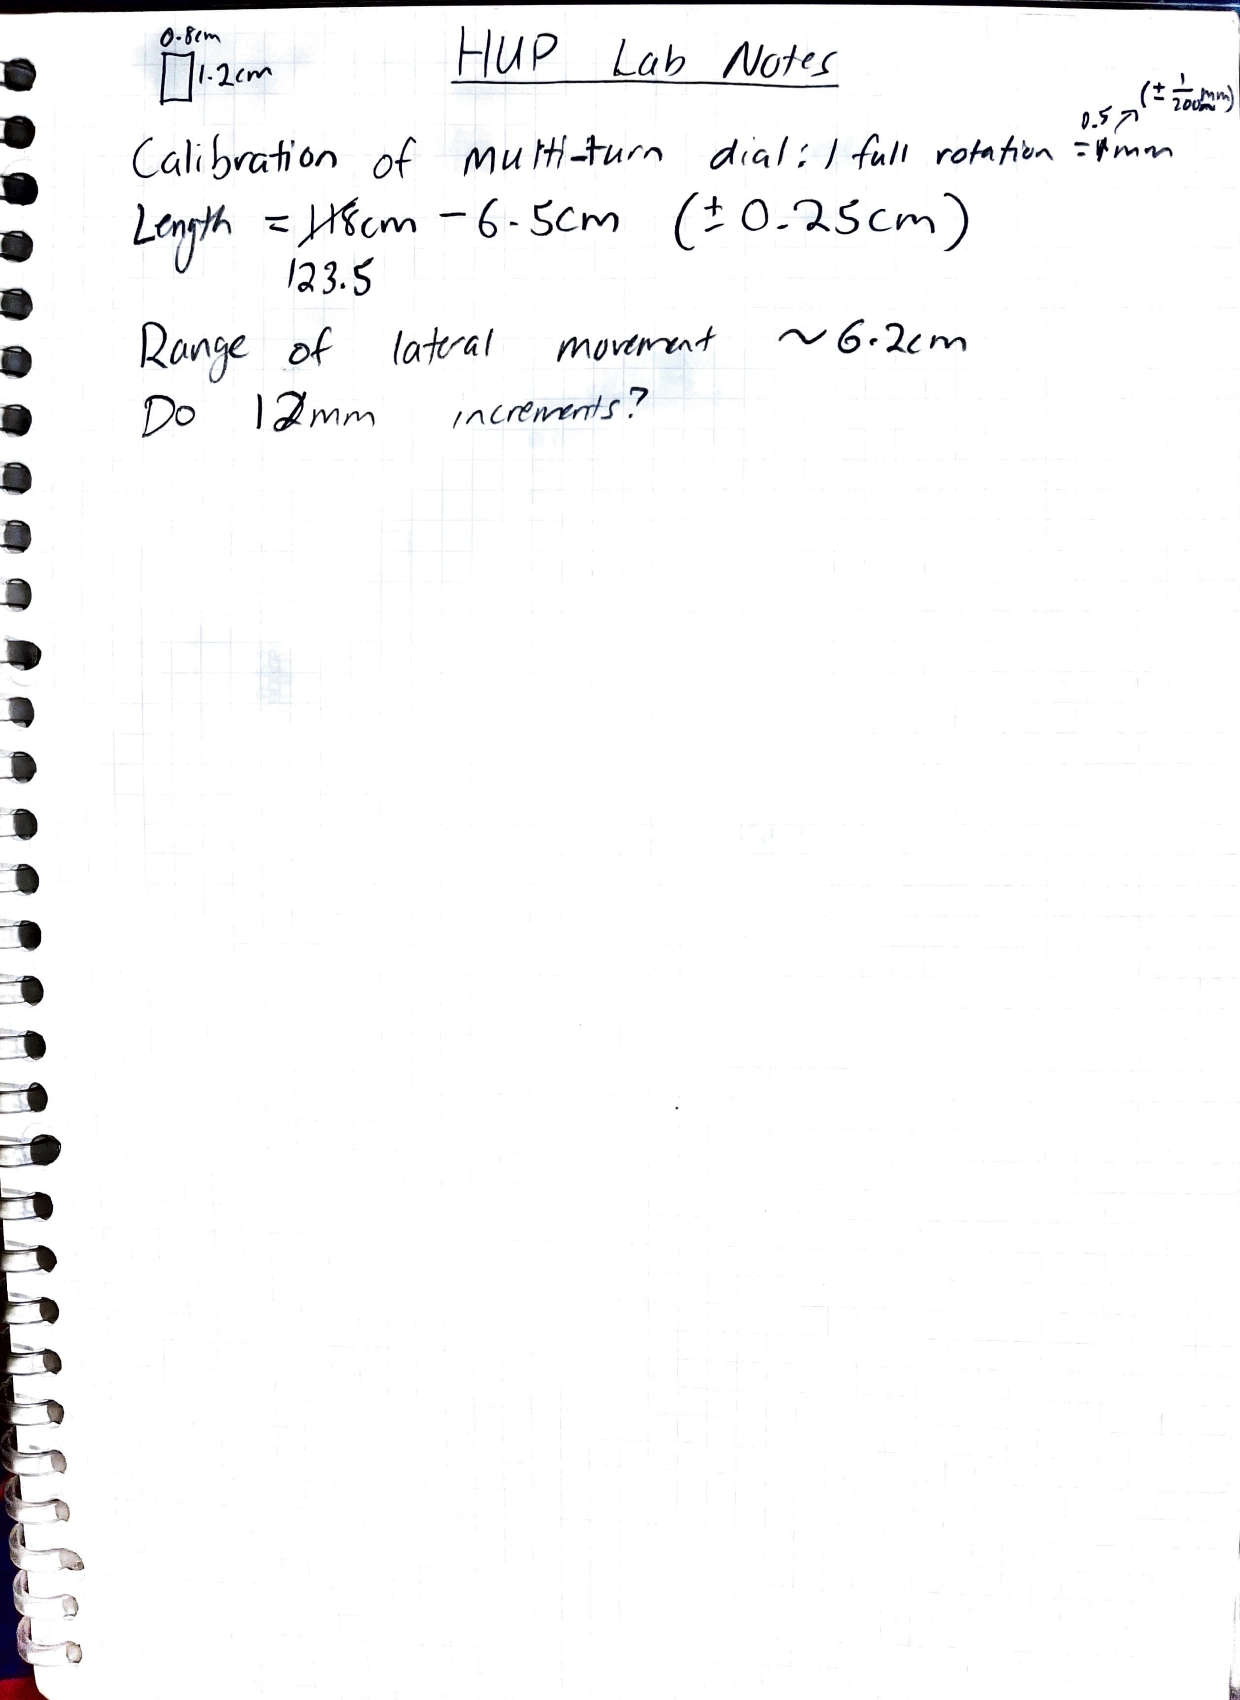 0.8cm
1.2cm
HUP Lab Notes
(± 1/200 mm)
0.5
Calibration of multi-turn dial: 1 full rotation = mm
Length = 118cm - 6.5cm (± 0.25cm)
123.5
Range of lateral movement ~6.2cm
Do 1 mm increments?